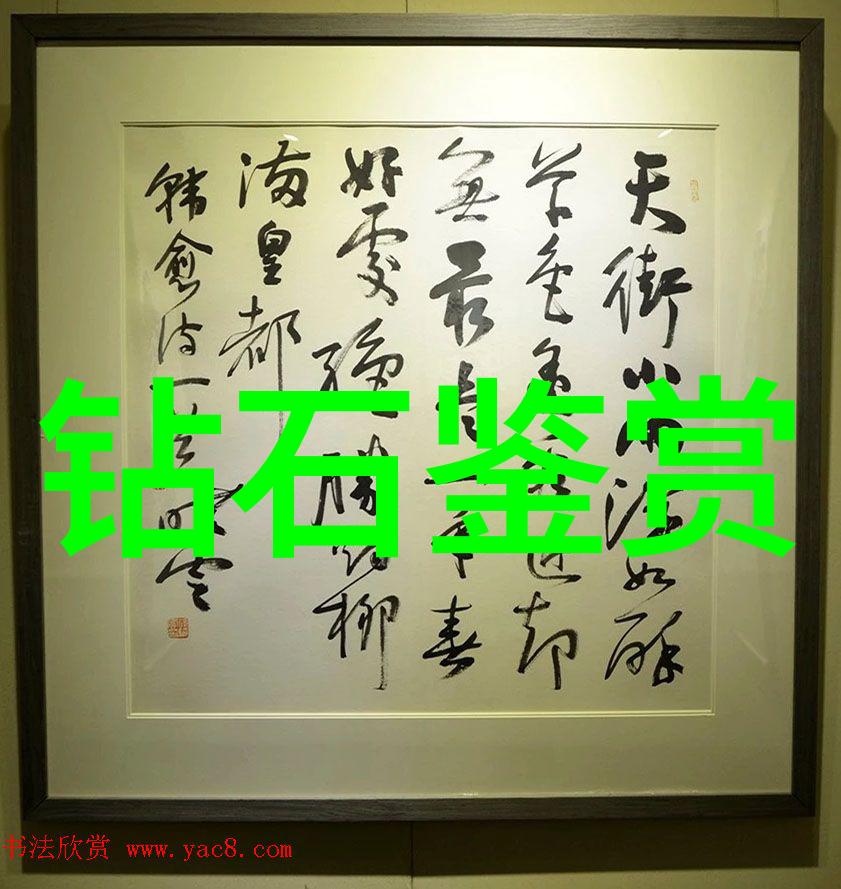 天街小雨润如酥
草色遥看近却
无最是一年春
好處绝勝烟柳
满皇都
韩愈诗一首
钻石鉴赏
书法欣赏 www.yac8.com